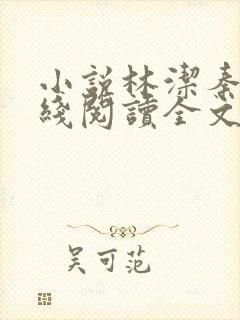 小説林潔秦
綫閱讀全文
吴可范